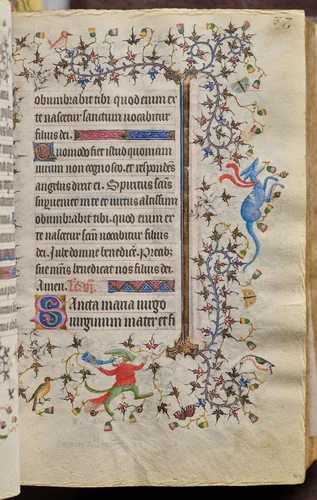 57
obumbrabit tibi quod enim ex
te nascetur sanctum vocabitur
filius dei.
Quomodo fiet istud quoniam
virum non cognosco. et respondẽs
angelus dixit ei. Spiritus scũs
superveniet in te et virtus altissimi
obumbrabit tibi. quod enim ex
te nascetur scm̃ vocabitur filius
dei. Iube domne benedicẽ. Precib;
sue mr̃is benedicat nos filius dei.
Amen.
Sancta maria virgo
virginum mater et fi